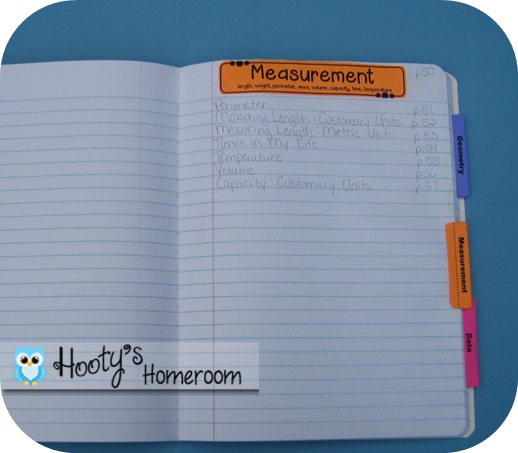 Measurement p.50
length, weight, perimeter, area, volume, capacity, time, temperature
Perimeter p.51
Measuring Length: Customary Units p.52
Measuring Length: Metric Units p.53
Times in My Life p.54
Temperature p.55
Volume p.56
Capacity: Customary Units p.57
Geometry
Measurement
Data
Hooty's Homeroom